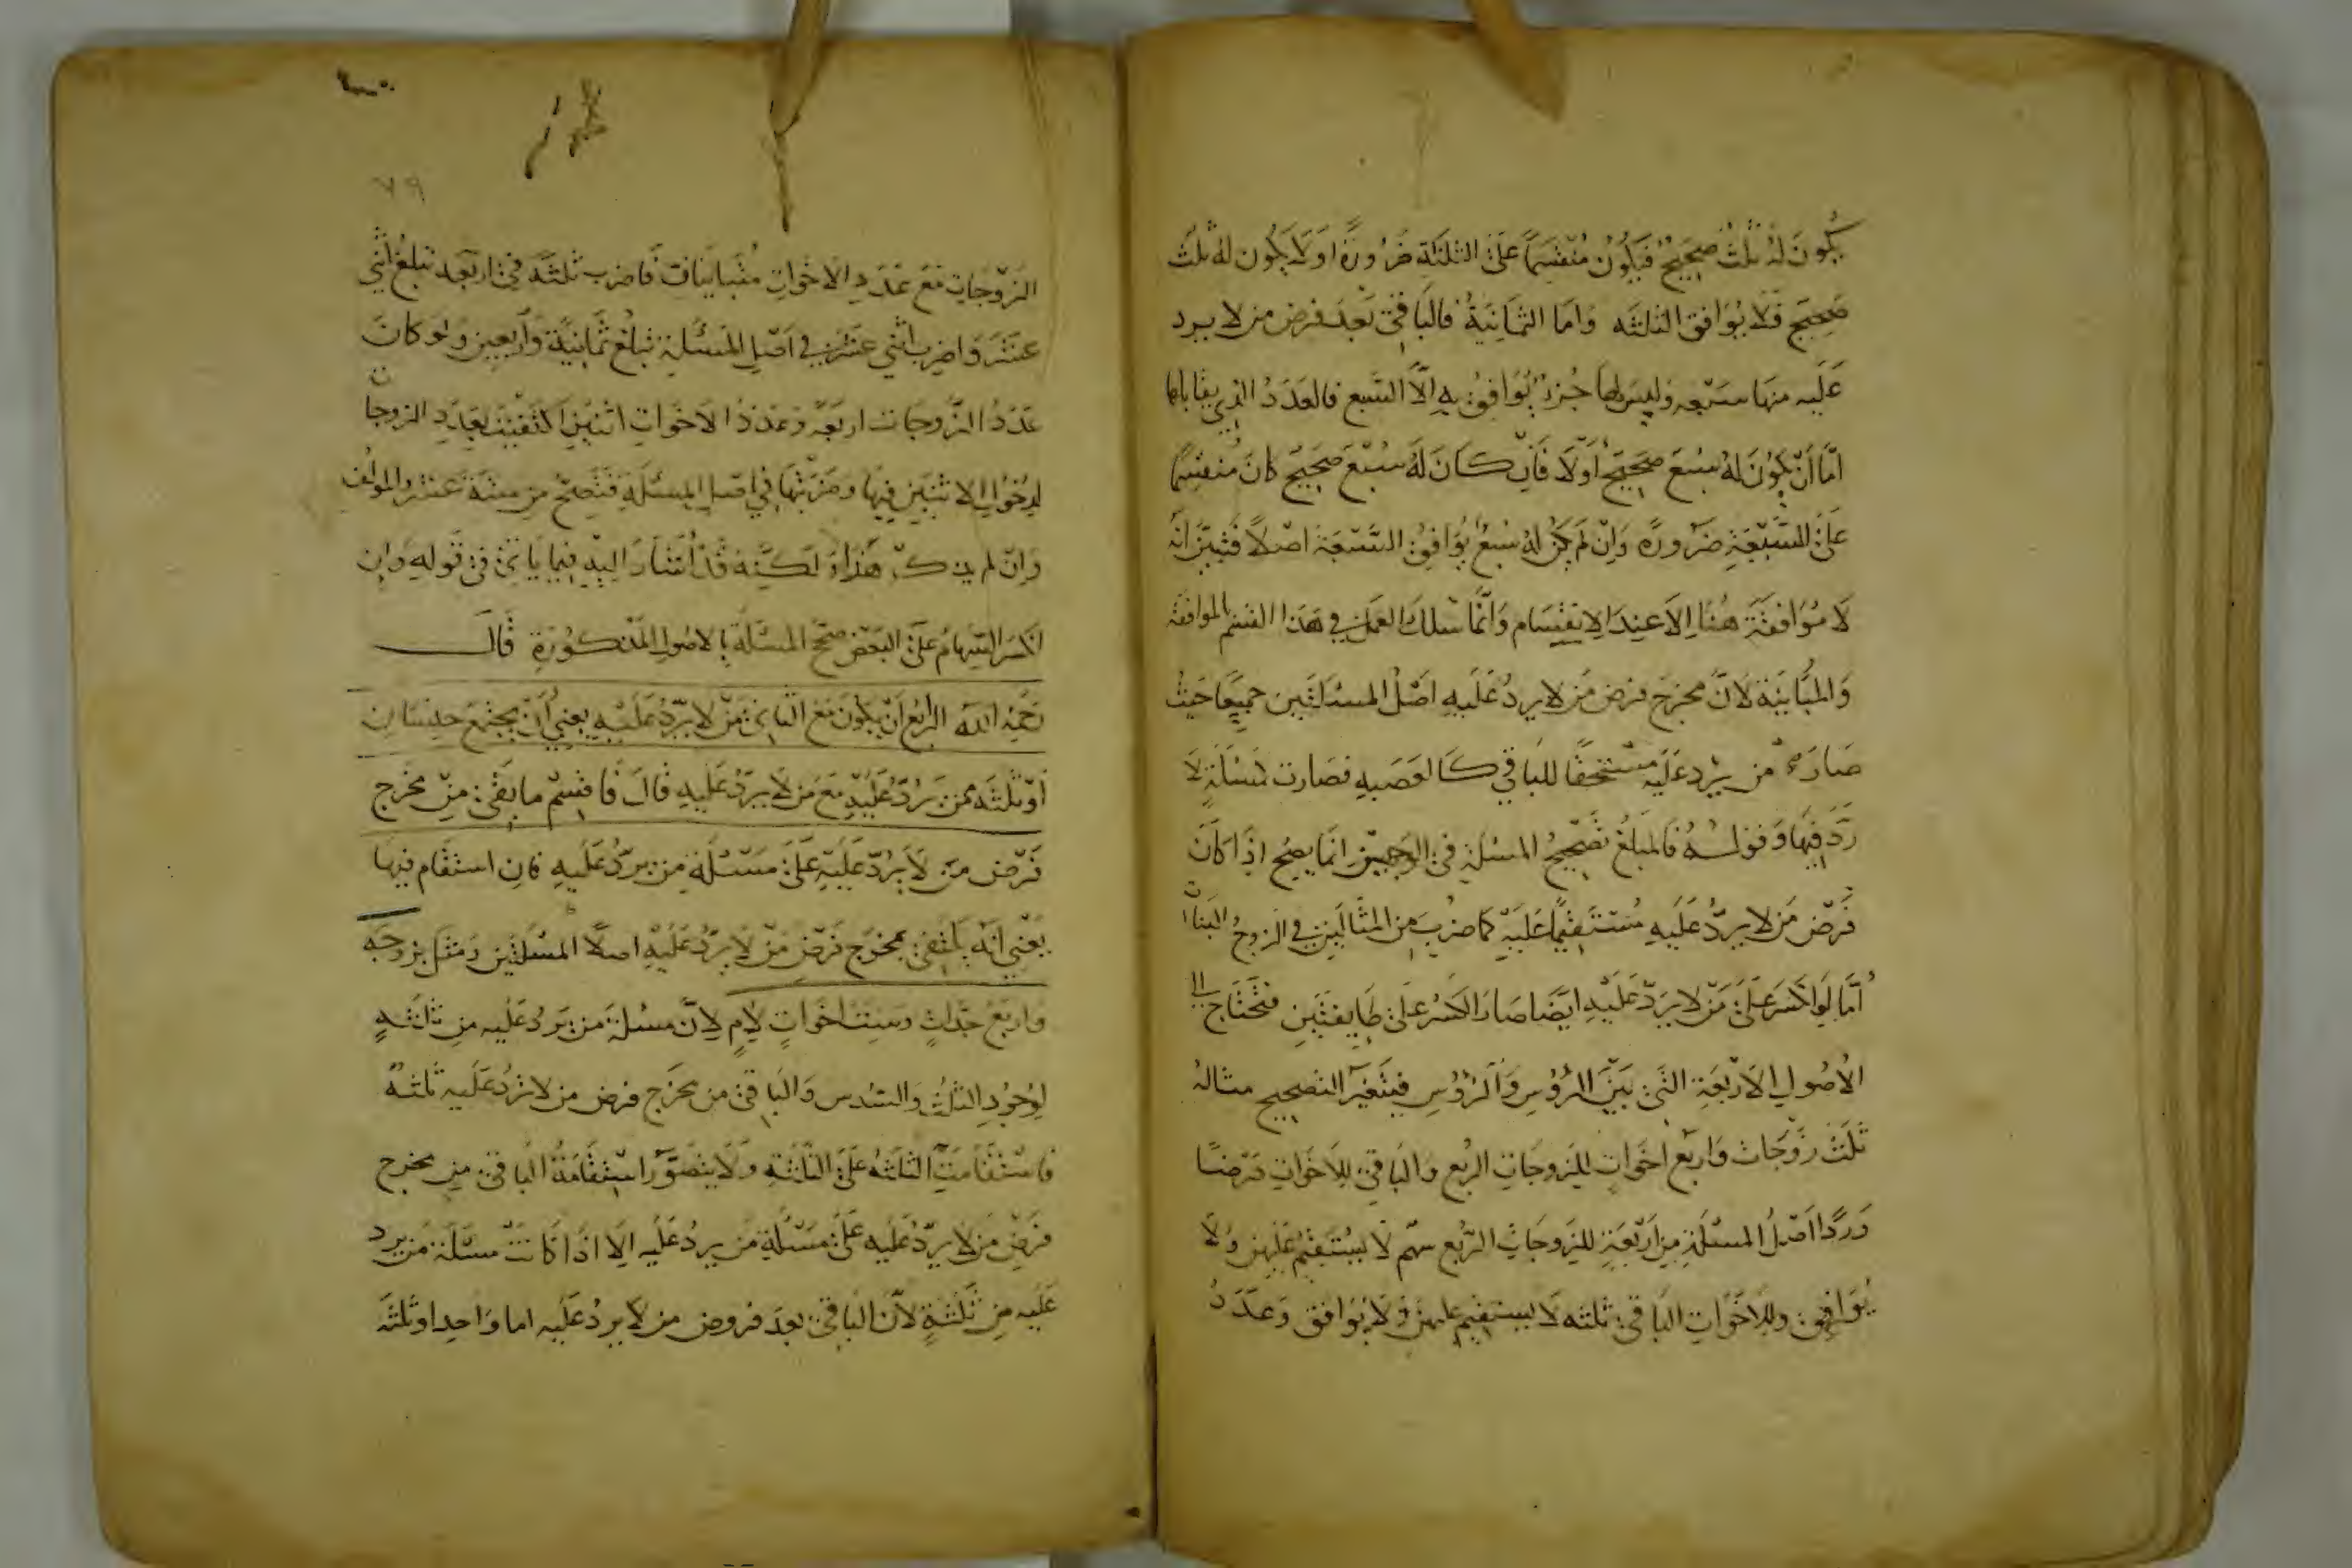 يكون له ثلث صحيح فيكون منقسما على الثلثة ضرورة او لا يكون له ثلث
صحيح فلا يوافق الثلثه واما الثمانية فالباقي بعد فرض من لا يرد
عليه منها سبعه وليس لها جزء يوافق به الا السبع فالعدد الذي يقابلها
اما أن يكون له سبع صحيح أولا فان كان له سبع صحيح كان منقسما
على السبعة ضرورة وان لم يكن له سبع يوافق السبعة اصلا فتبين انه
لا موافقة هنا الا عند الانقسام وانما سلك العمل في هذا القسم الموافقة
والمباينة لان مخرج فرض من لا يرد عليه اصل المسئلتين جميعا حيث
صار من يرد عليه مستحقا للباقي كالعصبه فصارت مسئلة لا
رد فيها وقوله فالمبلغ تصحيح المسئلة في الوجهين انما يصح اذا كان
فرض من لا يرد عليه مستقيما عليه كما ضرب من المثالين في الزوج البنات
أما لو انكسر على من لا يرد عليه ايضا صار الكسر على طايفتين فتحتاج الى
الاصول الاربعة التي بين الرؤس والرؤس فيتغير التصحيح مثاله
ثلث زوجات واربع اخوات للزوجات الربع والباقي للاخوات فرضا
وردا اصل المسئلة من اربعة للزوجات الربع سهم لا يستقيم عليهن ولا
يوافق وللاخوات الباقي ثلثه لا يستقيم عليهن ولا يوافق وعدد
٧٩
الزوجات مع عدد الاخوات متباينان فاضرب ثلثه في اربعه تبلغ اثني
عشر فاضرب اثني عشر في اصل المسئلة تبلغ ثمانية وأربعين ولو كان
عدد الزوجات اربعة وعدد الاخوات اثنين اكتفيت بعدد الزوجات
لدخول الاثنين فيها وضربتها في اصل المسئلة فتصح من ستة عشر والمؤلف
وان لم يذكر هذا لكنه قد أشار اليه فيما ياتي في قوله وان
انكسر السهام على البعض صحح المسئلة بالاصول المذكورة قال
رحمه الله الرابع أن يكون مع الثاني من لا يرد عليه يعني أن يجتمع جنسان
أو ثلثه ممن يرد عليه مع من لا يرد عليه قال فاقسم ما بقي من مخرج
فرض من لا يرد عليه على مسئلة من يرد عليه فان استقام فيها
يعني انه يكتفى بمخرج فرض من لا يرد عليه اصلا المسئلتين ومثل بزوجه
واربع جدات وست اخوات لام لان مسئلة من يرد عليه من ثلثه
لوجود الثلث والسدس والباقي من مخرج فرض من لا يرد عليه ثلثه
فاستقامت الثلثه على الثلثة ولا يتصور استقامة الباقي من مخرج
فرض من لا يرد عليه على مسئلة من يرد عليه الا اذا كانت مسئلة من يرد
عليه من ثلثة لان الباقي بعد فروض من لا يرد عليه اما واحد او ثلثه